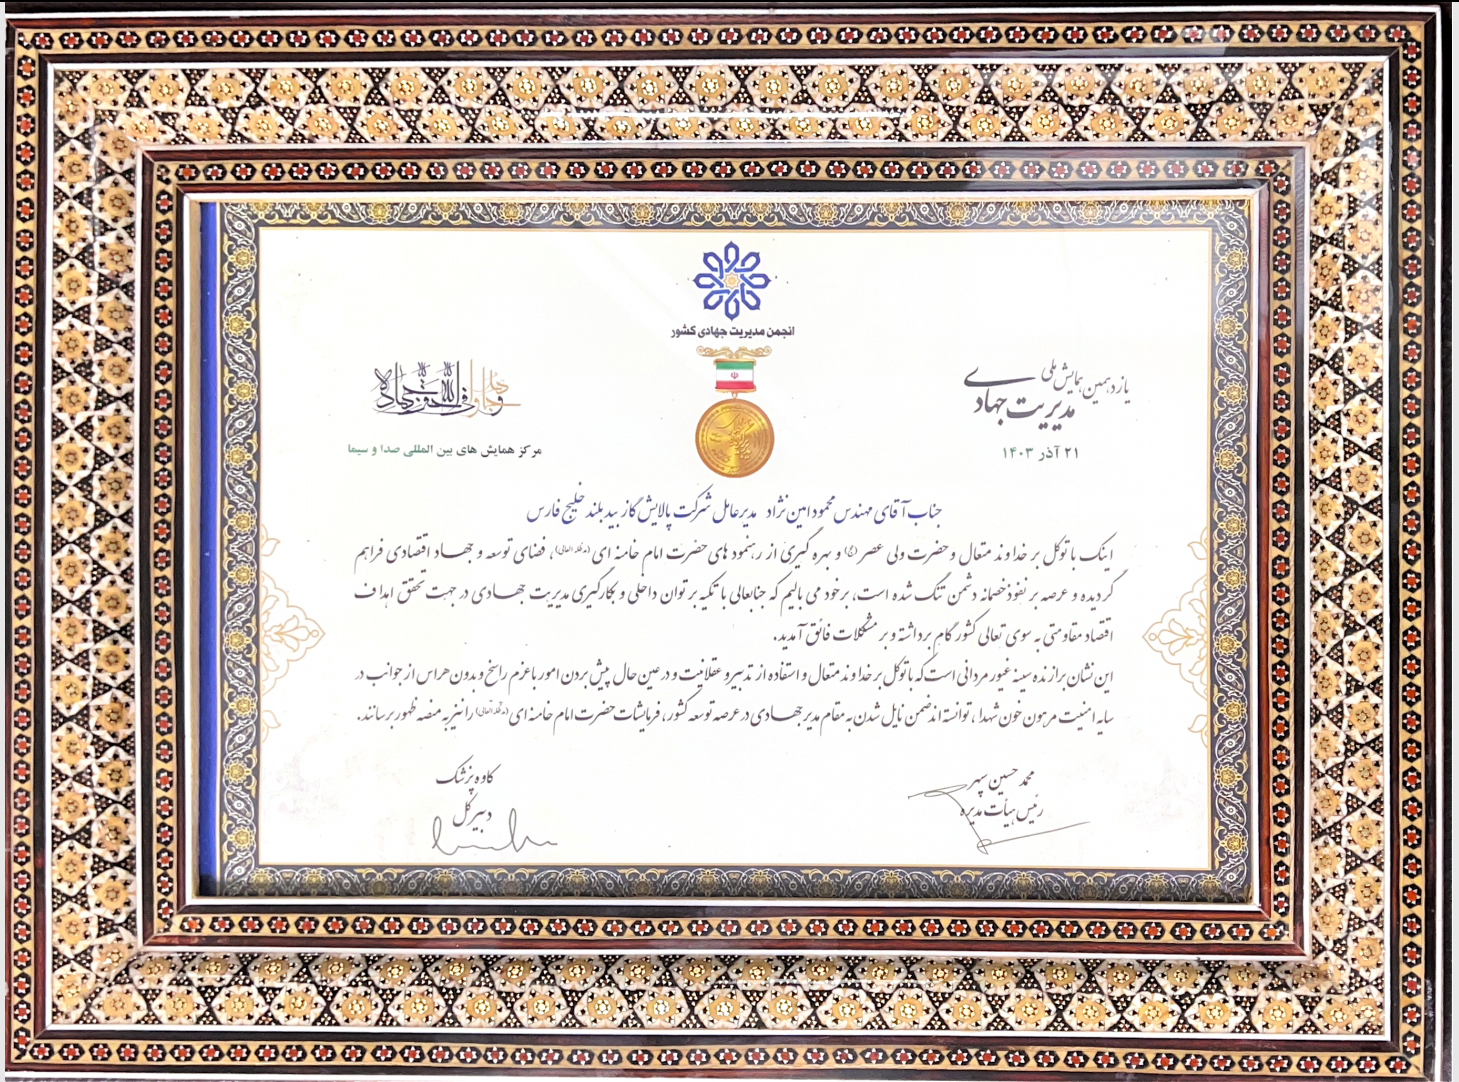 انجمن مدیریت جهادی کشور
یازدهمین همایش ملی
مدیریت جهادی
۲۱ آذر ۱۴۰۳
وجاهدوا فی الله حق جهاده
مرکز همایش های بین المللی صدا و سیما
جناب آقای مهندس محمود امین نژاد مدیرعامل شرکت پالایش گاز بیدبلند خلیج فارس
اینک با توکل بر خداوند متعال و حضرت ولی عصر (عج) و بهره گیری از رهنمود های حضرت امام خامنه ای (مدظله العالی)، فضای توسعه و جهاد اقتصادی فراهم
گردیده و عرصه بر نفوذ خصمانه دشمن تنگ شده است، بر خود می بالیم که جنابعالی با تکیه بر توان داخلی و بکارگیری مدیریت جهادی در جهت تحقق اهداف
اقتصاد مقاومتی به سوی تعالی کشور گام برداشته و بر مشکلات فائق آمدید.
این نشان برازنده سینه غیور مردانی است که با توکل بر خداوند متعال و استفاده از تدبیر و عقلانیت و در عین حال پیش بردن امور با عزم راسخ و بدون هراس از جوانب در
سایه امنیت مرهون خون شهدا، توانسته اند ضمن نایل شدن به مقام مدیر جهادی در عرصه توسعه کشور، فرمایشات حضرت امام خامنه ای (مدظله العالی) را نیز به منصه ظهور برسانند.
محمد حسین سپهر
رئیس هیأت مدیره
کاوه پزشک
دبیرکل